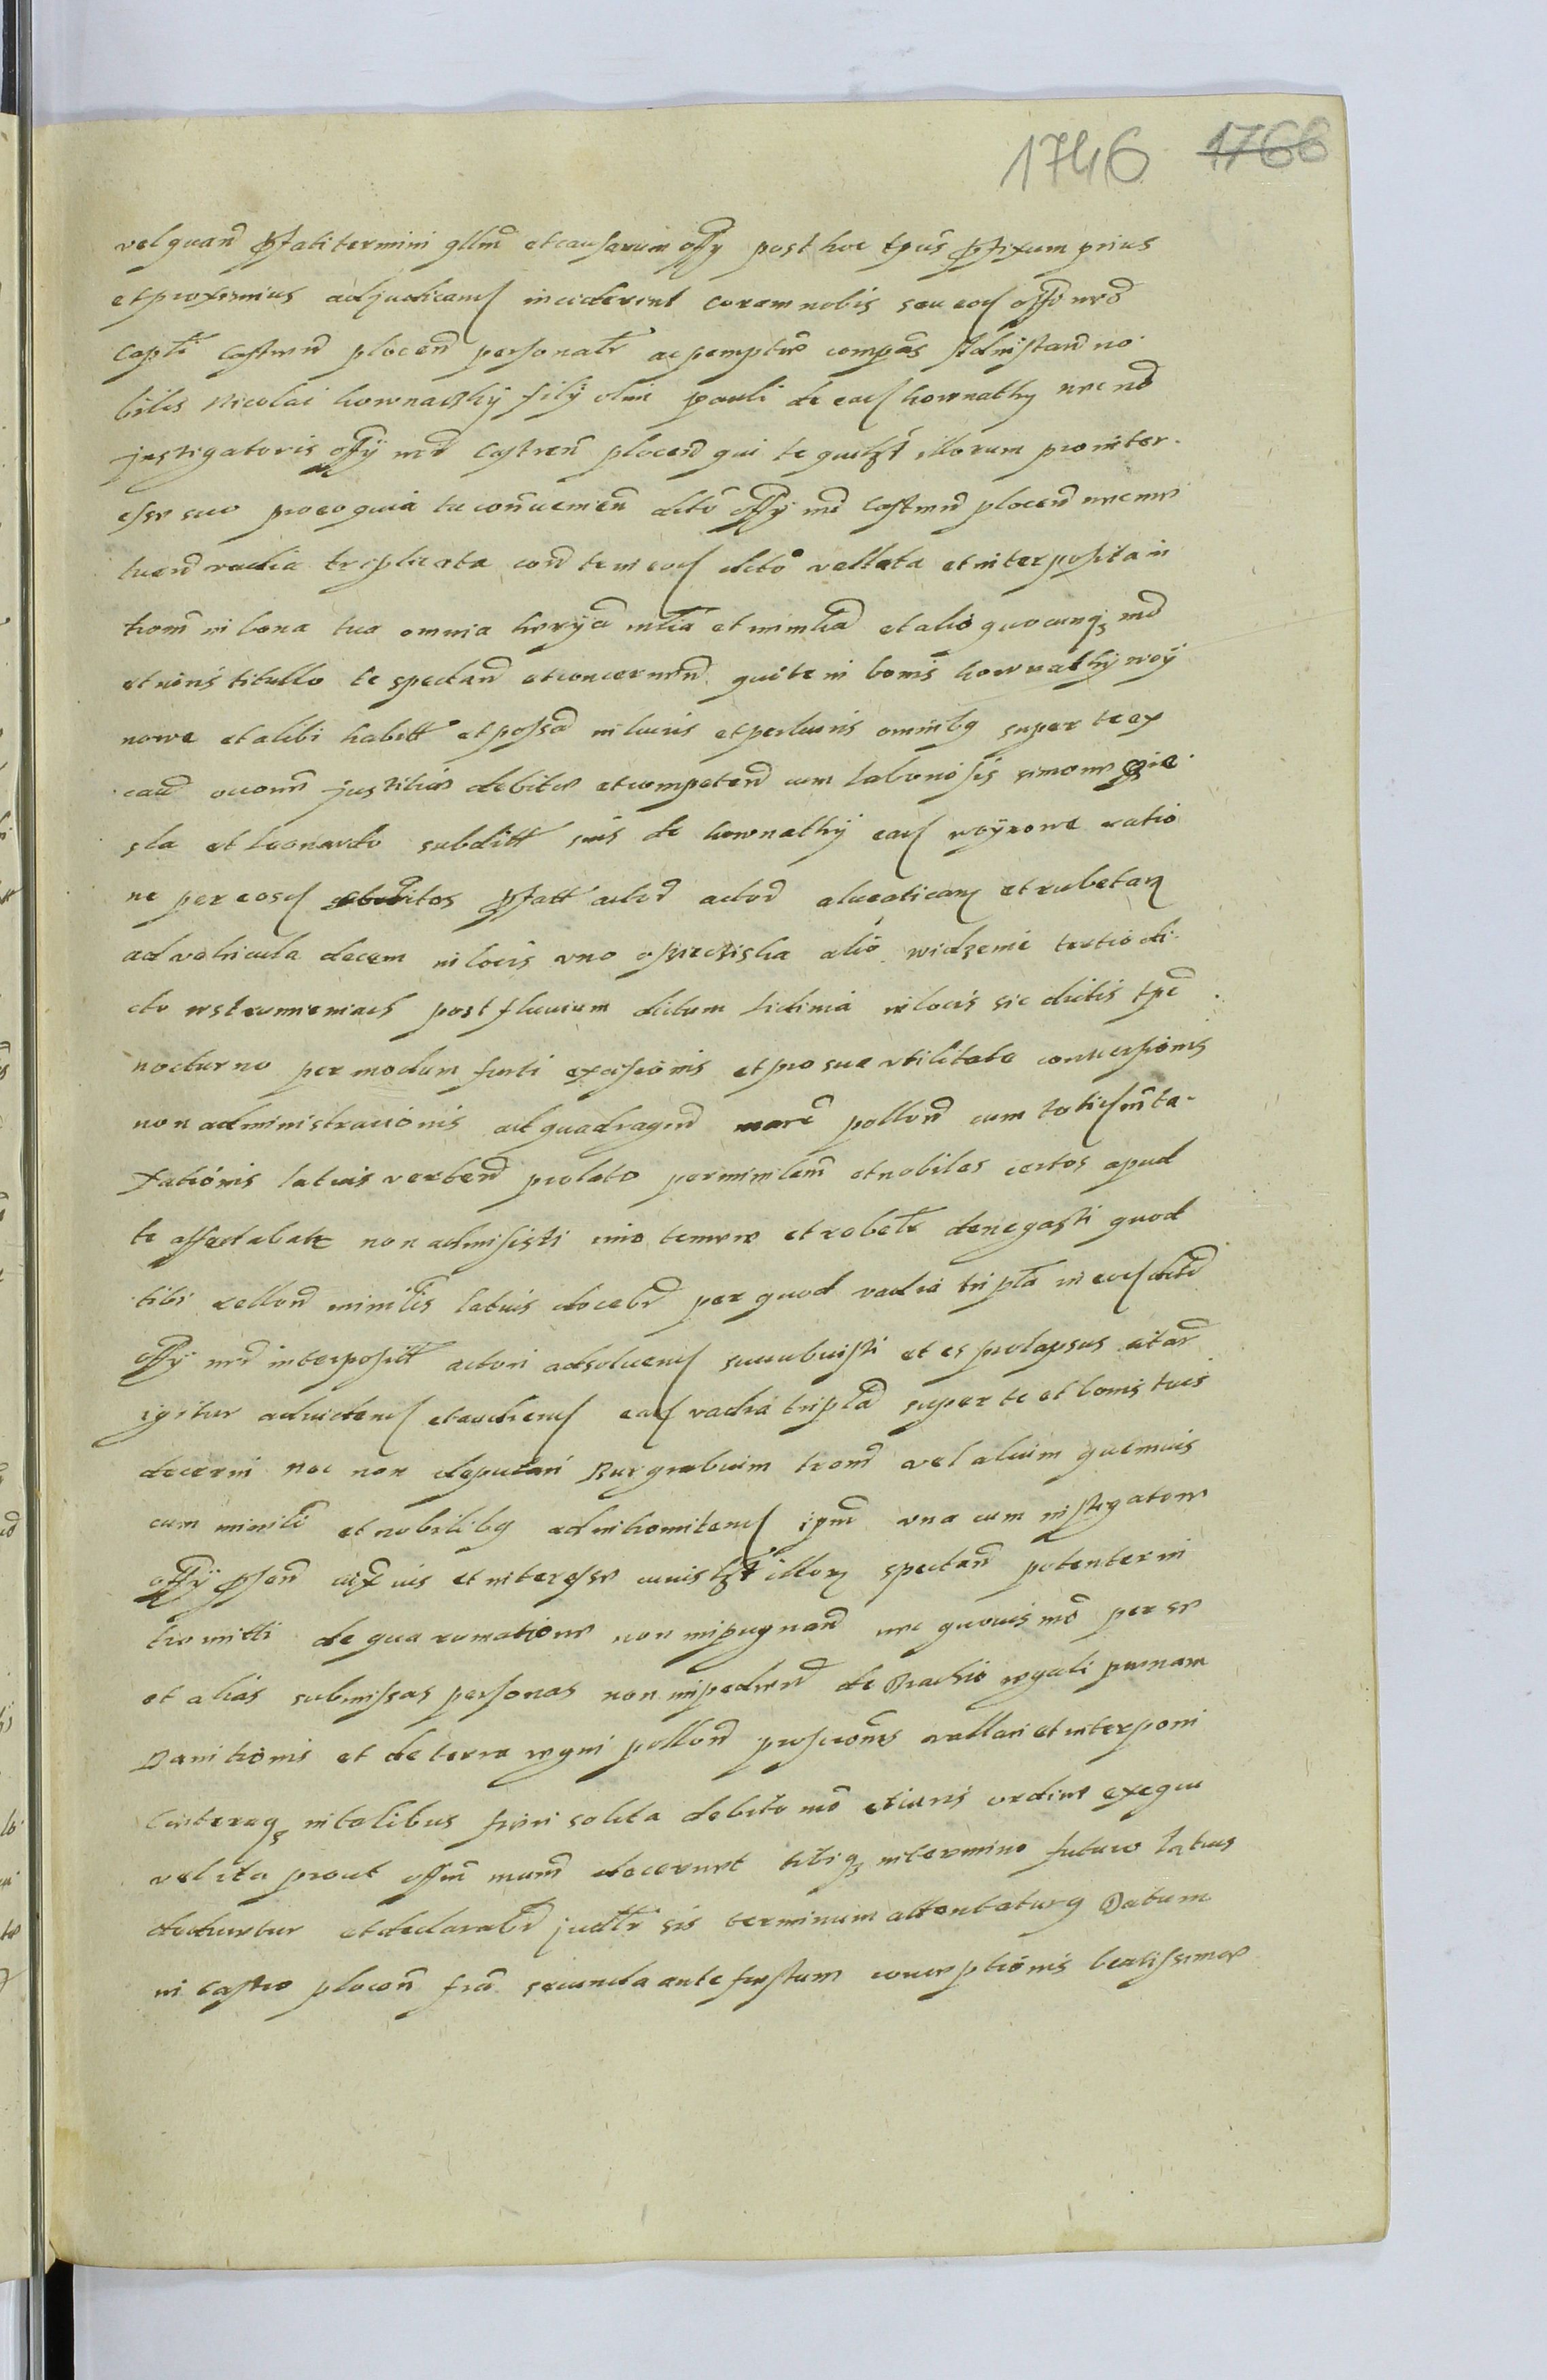 1746 1766
vel quand pfati termini gllm et causarum offy post hoc tpus pfixum prius
et proximius adjudicand inciderint coram nobis seu eod offo nro
Capli Castren plocen personalr ac pemptrie compas ad instan no
bilis Nicolai kownaczky fily olim pauli de ead kownathy nec no
jnstigatoris offy nri Castren plocen qui te quilzt illorum pro inter
esse suo pro eo quia tu conuemen acto offy nri Castren plocen nec non
tuen vadia triplicata cond te in eod acto vallata et interposita in
trom in bona tua omnia hereda mtia et immlia et alio quocunq md
et iuris titullo te spectan et concernen que te in bonis kownathy woy
nowe et alibi habitt et possa in lucris et perlucris omnibg super te ex
caus occone justitie debite et competen cum laboriosis simone gie
sla et leonardo subditt suis de kownathy ead woynowe ratio
ne per eosd subditos pfatt actor actor alucaticarz et rubetarz
ad vehicula decem in locis vno alio widzenie tertio di
cto post fluuium dictum lidinia in locis sic dictis tpe
nocturno per modum furti excisionis et pro sua vtilitate conuersionis
non administracionis ad quadragin marc pollon cum totiesm ta
xationis latius verten prolato per minlem et nobiles certos apud
te affectabatr non admisisti imo temere et rebelr denegasti quod
tibi rellon minilis latius docebr per quod vadia tripla in eod actu
offy nri interposit actori adsoluend succubuisti et es prolapsus citar
igitur aduidend et audiend ead vadia tripla super te et bonis tuis
decerni nec non deputari Burgrabium trom vel alium quemuis
cum minili et nobilibg ad intromitend ipm vna cum instigatore
offy psen cuius et interesse cuius lzt illorz spectan potenter in
tromitti de qua rumatione non impugnan nec quouis mo per se
et alias submissas personas non impedien de Brachio regali penam
Banitionis et de terra regni pollon proscrionis vallari et interponi
Ceteraq in talibus fieri solita debito mo et iuris ordine exequi
vel ita prout offm nrum decernet tibiq in termino futuro latius
deducetur et declarabr judlr sis terminum attentaturg Datum
in Castro plocen fria secunda ante festum conceptionis beatissime